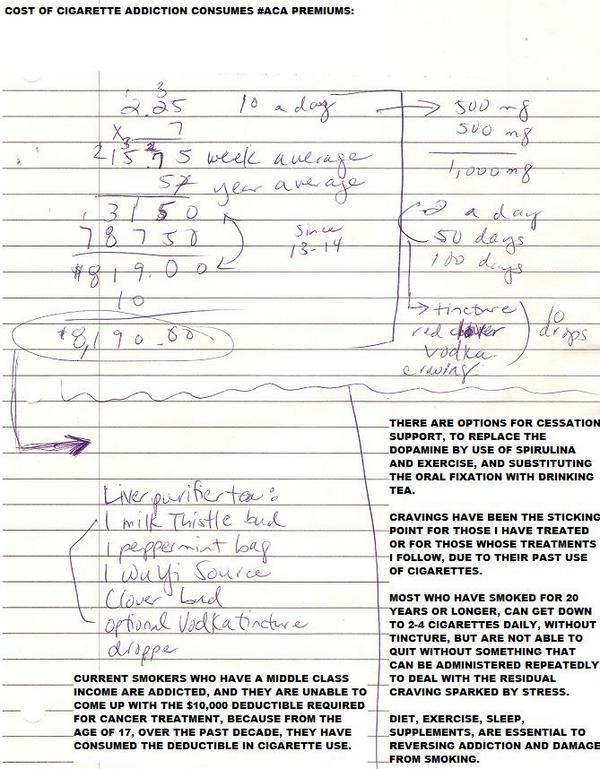 COST OF CIGARETTE ADDICTION CONSUMES #ACA PREMIUMS:
3
2.25 10 a day → 500 mg
x 7 500 mg
15.75 week average 1,000 mg
52 year average
3150 a day
78750 Since 13-14 50 days
$819.00 100 days
10 → tincture
$8,190.00 red clover
vodka 10 drops
craving
Liver purifier tea:
1 milk Thistle bud
1 peppermint bag
1 Wu Yi Source
Clover bud
optional Vodka tincture
dropper
THERE ARE OPTIONS FOR CESSATION
SUPPORT, TO REPLACE THE
DOPAMINE BY USE OF SPIRULINA
AND EXERCISE, AND SUBSTITUTING
THE ORAL FIXATION WITH DRINKING
TEA.
CRAVINGS HAVE BEEN THE STICKING
POINT FOR THOSE I HAVE TREATED
OR FOR THOSE WHOSE TREATMENTS
I FOLLOW, DUE TO THEIR PAST USE
OF CIGARETTES.
MOST WHO HAVE SMOKED FOR 20
YEARS OR LONGER, CAN GET DOWN
TO 2-4 CIGARETTES DAILY, WITHOUT
TINCTURE, BUT ARE NOT ABLE TO
QUIT WITHOUT SOMETHING THAT
CAN BE ADMINISTERED REPEATEDLY
TO DEAL WITH THE RESIDUAL
CRAVING SPARKED BY STRESS.
DIET, EXERCISE, SLEEP,
SUPPLEMENTS, ARE ESSENTIAL TO
REVERSING ADDICTION AND DAMAGE
FROM SMOKING.
CURRENT SMOKERS WHO HAVE A MIDDLE CLASS
INCOME ARE ADDICTED, AND THEY ARE UNABLE TO
COME UP WITH THE $10,000 DEDUCTIBLE REQUIRED
FOR CANCER TREATMENT, BECAUSE FROM THE
AGE OF 17, OVER THE PAST DECADE, THEY HAVE
CONSUMED THE DEDUCTIBLE IN CIGARETTE USE.